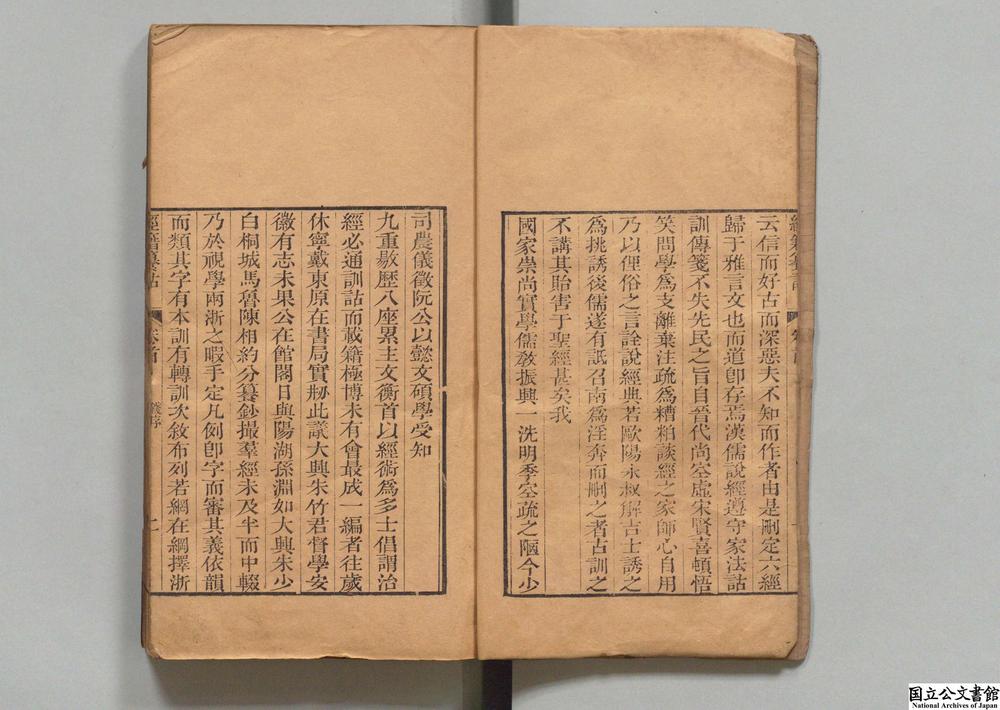 云信而好古而深惡夫不知而作者由是刪定六經
歸于雅言文也而道卽存焉漢儒說經遵守家法詁
訓傳箋不失先民之旨自晉代尚空虛宋賢喜頓悟
笑問學爲支離棄注疏爲糟粕談經之家師心自用
乃以俚俗之言詮說經典若歐陽永叔解吉士誘之
爲挑誘後儒遂有詆召南爲淫奔而刪之者古訓之
不講其貽害于聖經甚矣我
國家崇尚實學儒敎振興一洗明季空疏之陋今少
司農儀徵阮公以懿文碩學受知
九重敭歷八座累主文衡首以經術爲多士倡謂治
經必通訓詁而載籍極博未有會最成一編者往歲
休寧戴東原在書局實刱此議大興朱竹君督學安
徽有志未果公在館閣日與陽湖孫淵如大興朱少
白桐城馬魯陳相約分纂鈔撮羣經未及半而中輟
乃於視學兩浙之暇手定凡例卽字而審其義依韻
而類其字有本訓有轉訓次敘布列若網在綱擇浙
國立公文書館
National Archives of Japan